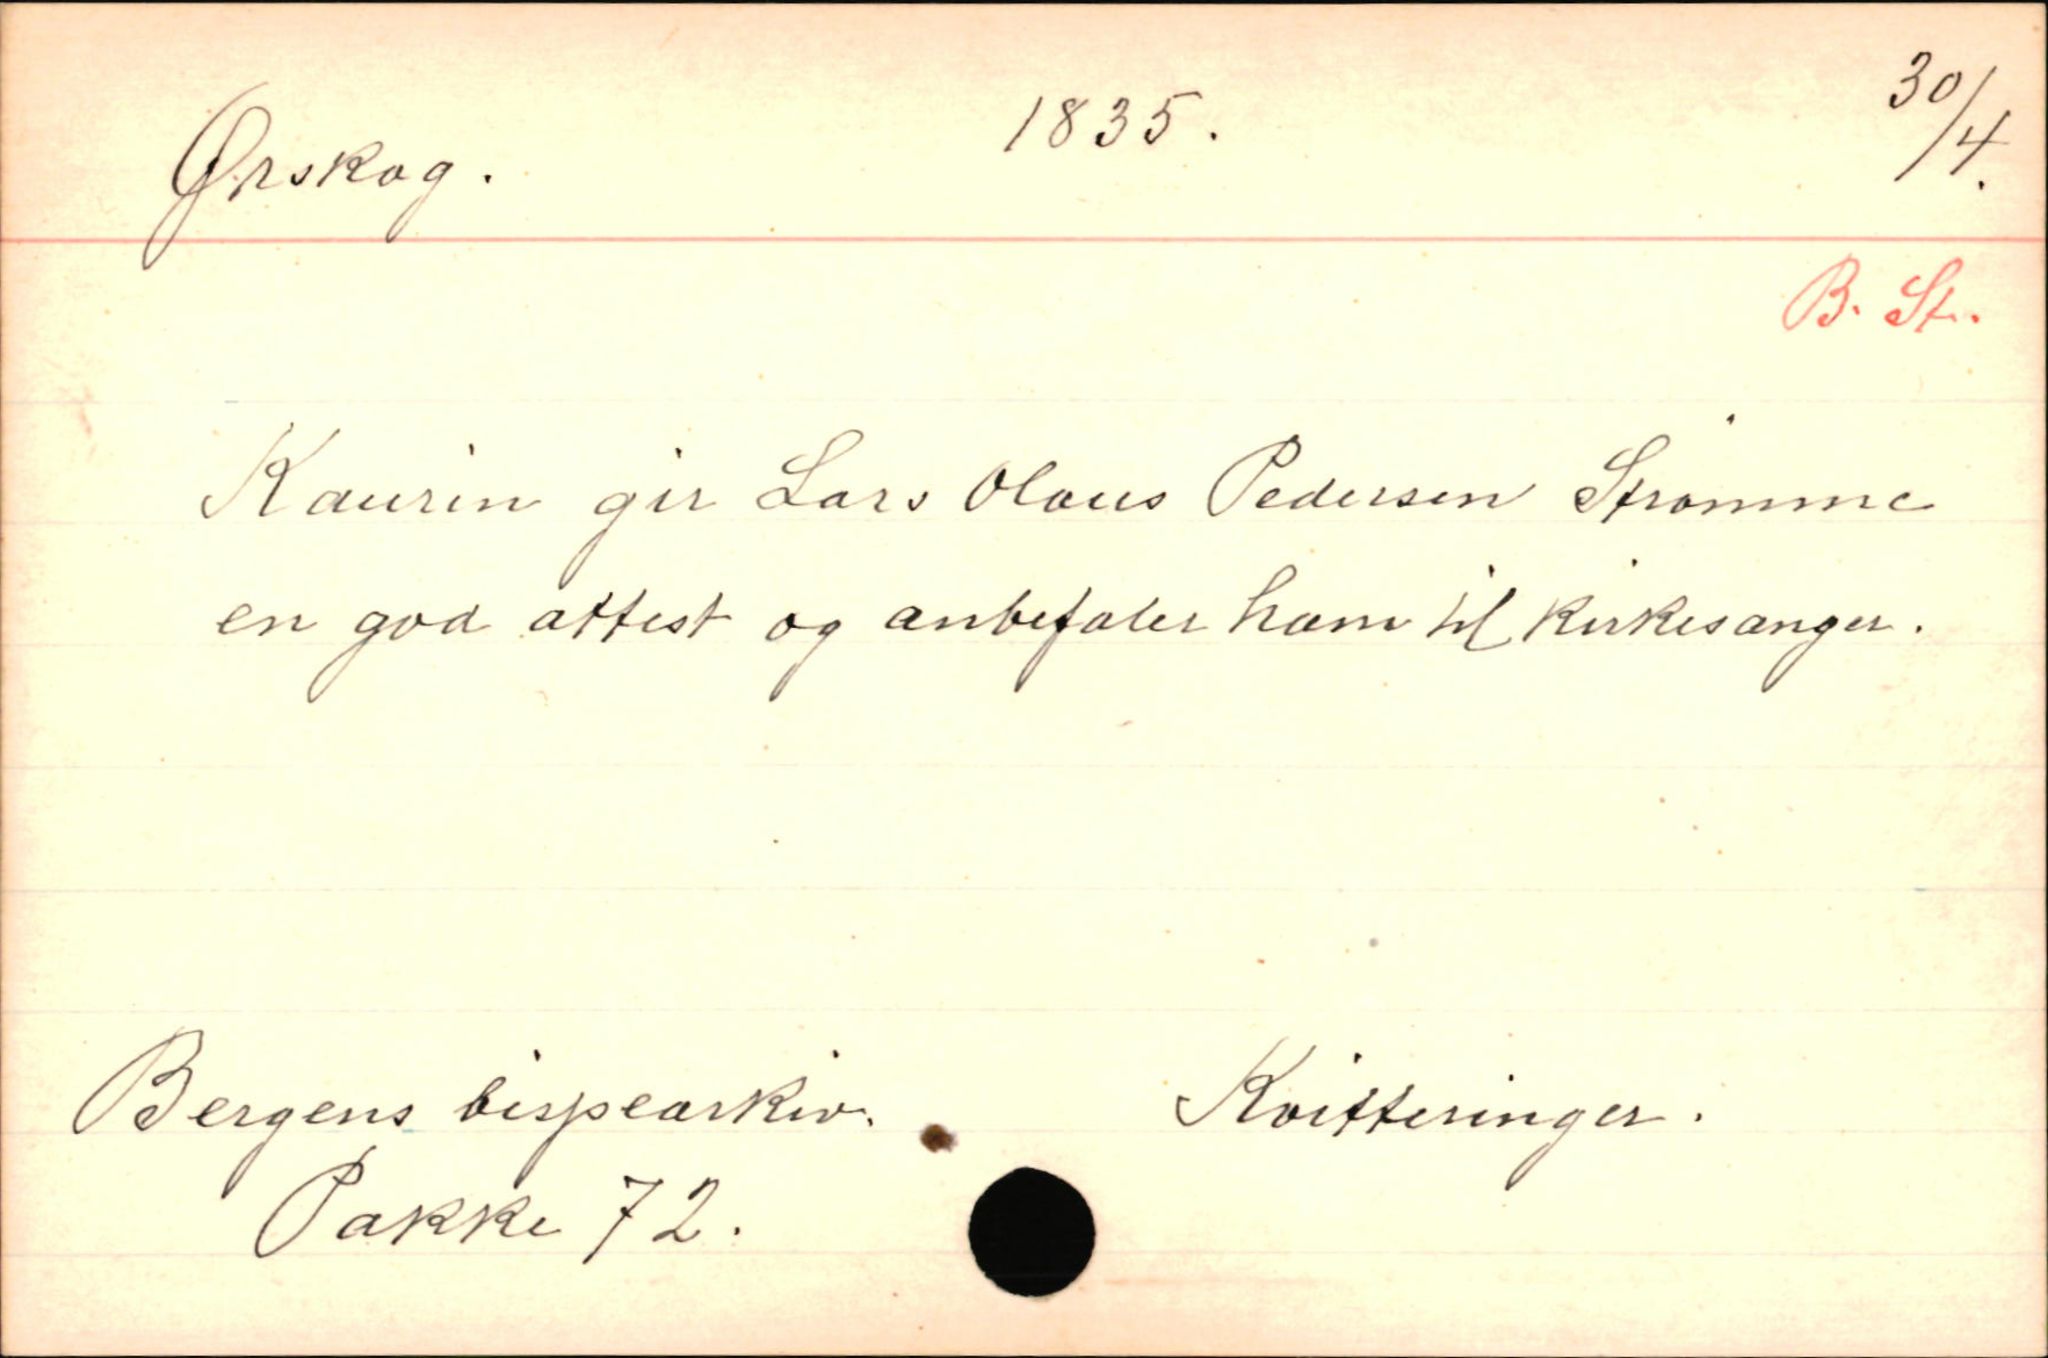 Ørskog. 1835. 30/4.
B. St.
Kaurin gir Lars Olaus Pedersen Strømme
en god attest og anbefaler ham til kirkesanger.
Bergens bispearkiv. Kvitteringer.
Pakke 72.